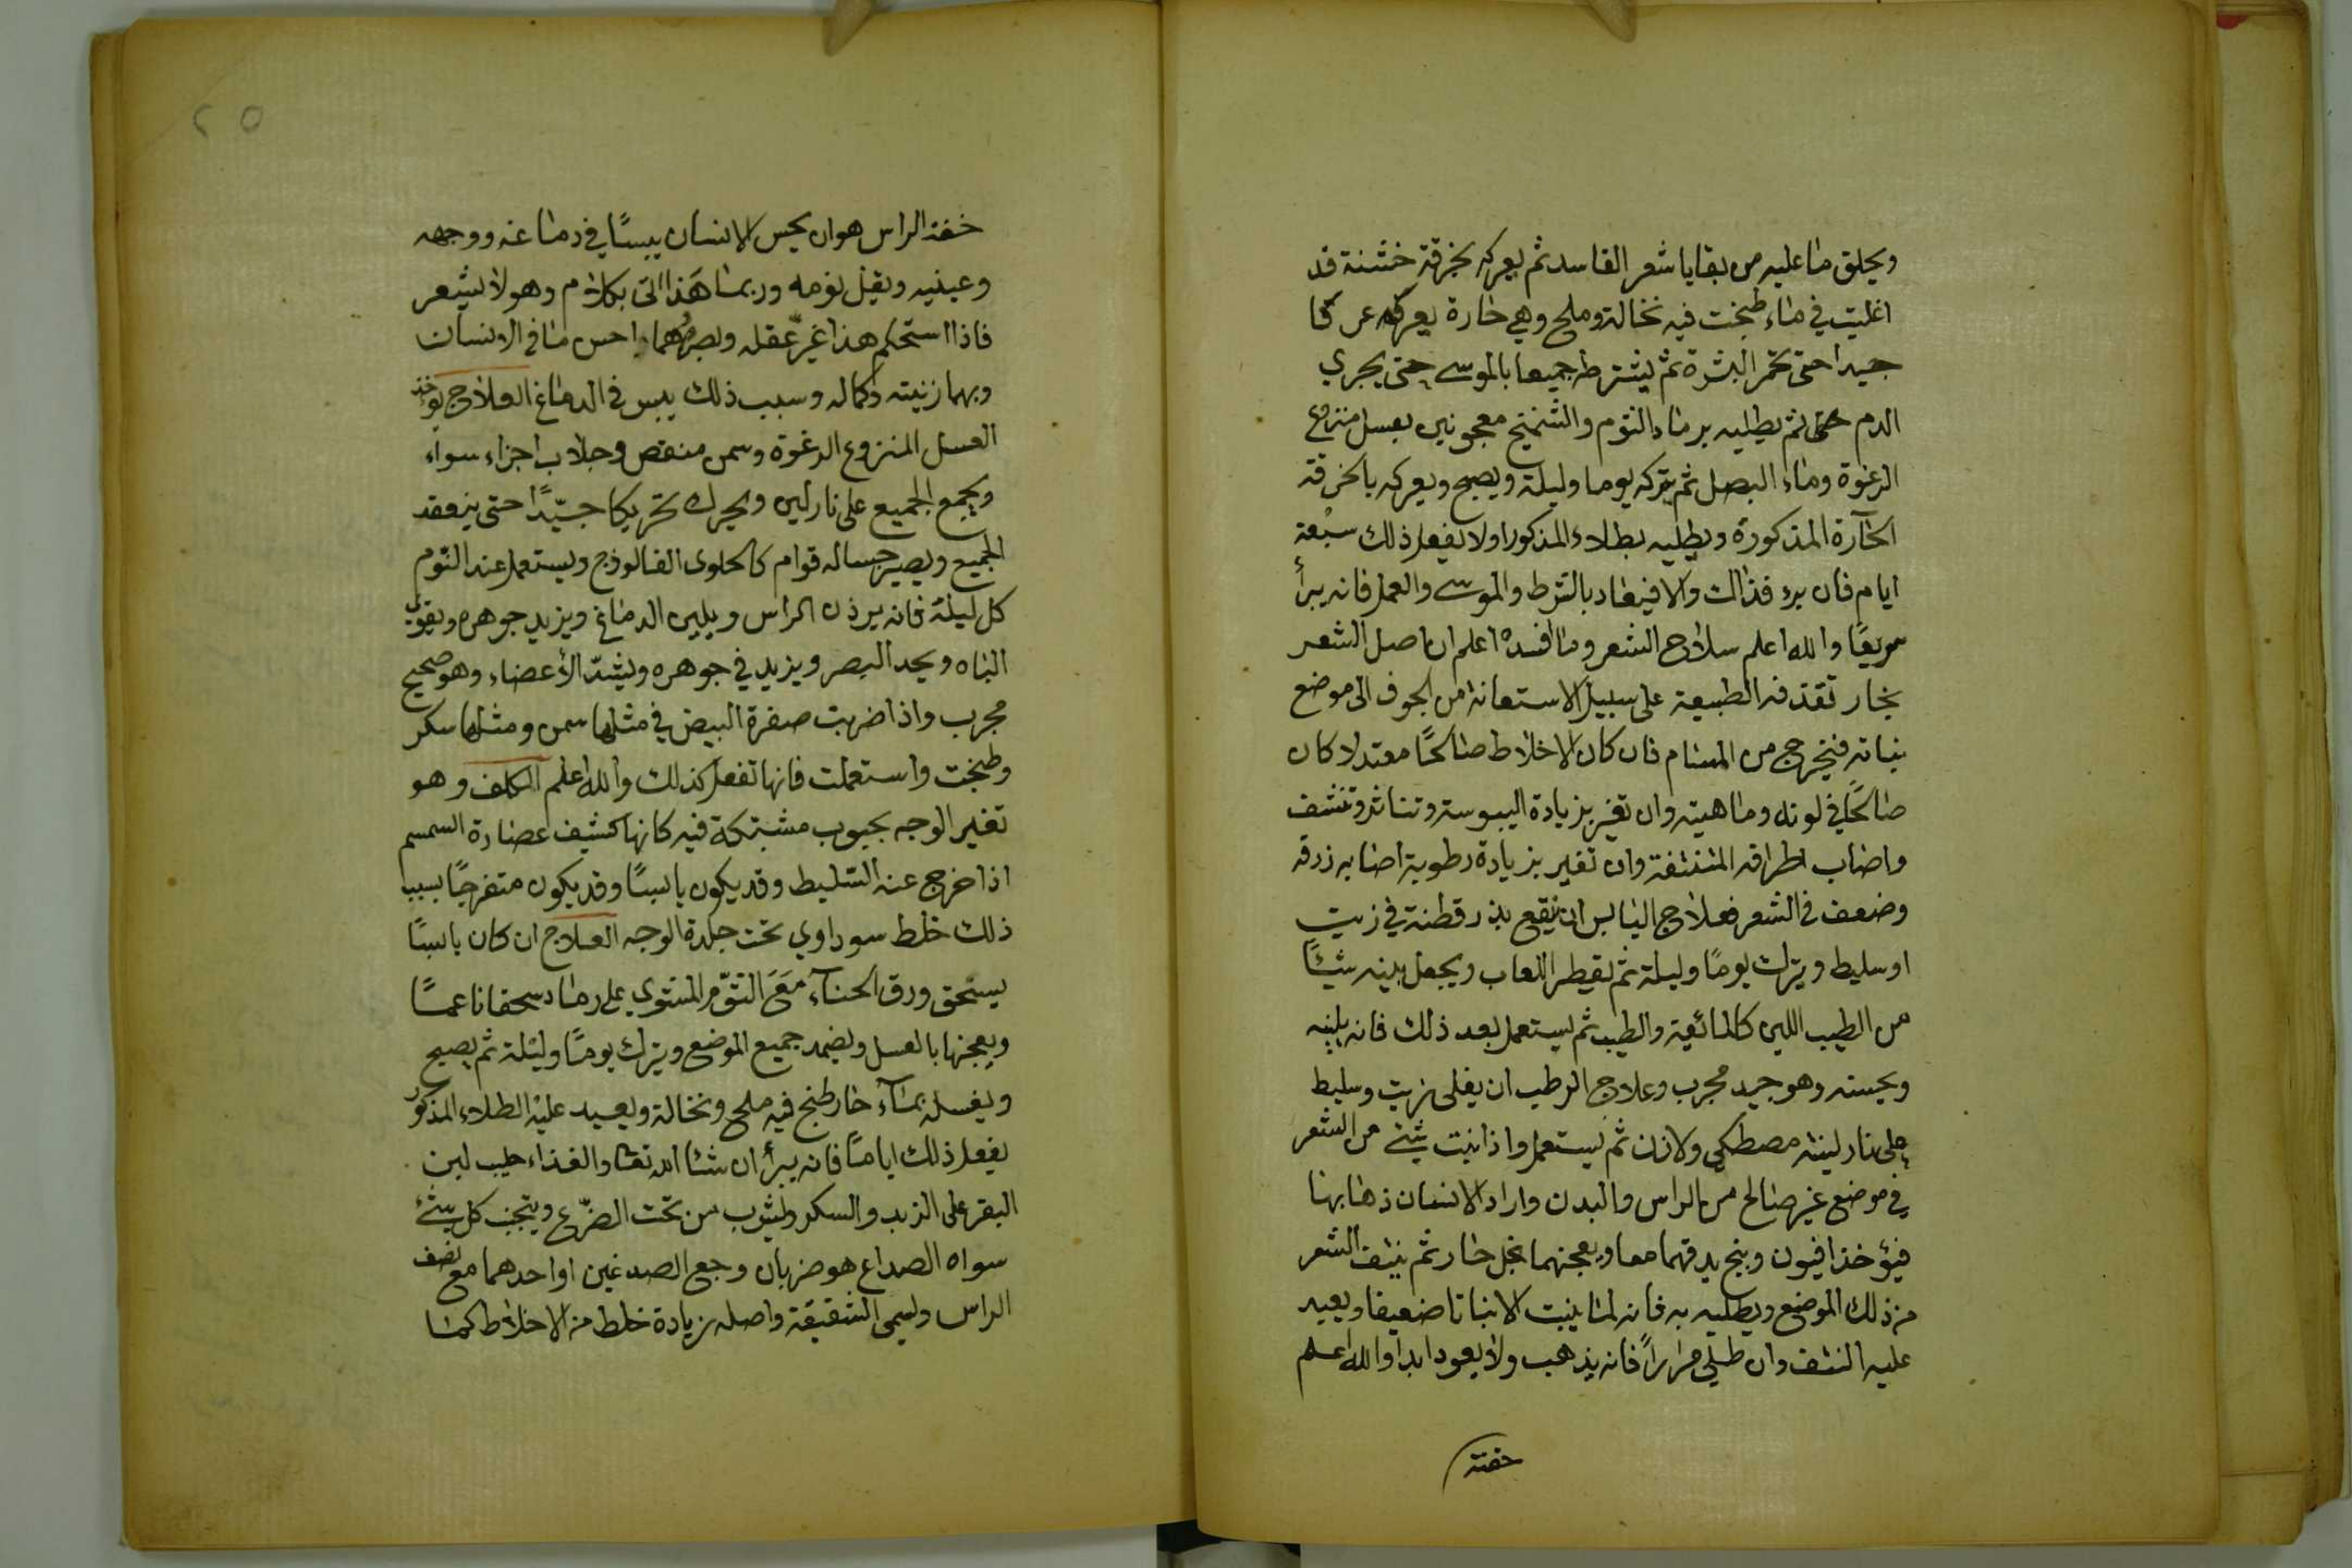 ويحلق ما عليه من بقايا شعر الفاسد ثم يعركه بخرقة خشنة قد
اغليت في ماء طبخت فيه نخالة وملح وهي حارة يعركه عركا
جيدا حتى تحمر البشرة ثم يشترط جميعا بالموسى حتى يجري
الدم حتى ثم يطليه برماد الثوم والشنيخ معجونين بعسل منزوع
الرغوة وماء البصل ثم يتركه يوما وليلة ويصبح ويعركه بالخرقة
الحارة المذكورة ويطليه بطلاء المذكور اولا يفعل ذلك سبعة
ايام فان برء فذالك والا فيعاد بالشرط والموسى والعمل فانه يبرأ
سريعًا والله اعلم سلاح الشعر وما افسده اعلم ان اصل الشعر
بخار تقذفه الطبيعة على سبيل الاستعانة من الجوف الى موضع
نباته فيخرج من المسام فان كان الاخلاط صالحًا معتدلا كان
صالحًا في لونه وماهيته وان تغير بزيادة اليبوسة وتناثر وتنشف
واصاب اطرافه المنتفة وان تغير بزيادة رطوبة اصابه زرقة
وضعف في الشعر فعلاج اليابس ان ينقع بذر قطنة في زيت
او سليط ويترك يومًا وليلة ثم يقطر اللعاب ويجعل بينه شيئًا
من الطيب اللين كالمائعية والطيب ثم يستعمل بعد ذلك فانه يلينه
ويحسنه وهو جيد مجرب وعلاج الرطب ان يغلى زيت وسليط
على نار لينه مصطكي ولاذن ثم يستعمل واذا نبت شئ من الشعر
في موضع غير صالح من الراس والبدن واراد الانسان ذهابها
فيؤخذ افيون وبنج يدقهما معا ويعجنهما بخل حار ثم ينتف الشعر
من ذلك الموضع ويطليه به فانه لما ينبت الا نباتا ضعيفا ويعيد
عليه النتف وان طلي مرارًا فانه يذهب ولا يعود ابدا والله اعلم
خفة
٢٥
خفة الراس هو ان يحس الانسان يبسًا في دماغه ووجهه
وعينيه ويقل نومه وربما هذا الى بكلام وهو لا يشعر
فاذا استحكم هذا غيّر عقله وبصره وهما احس ما في الانسان
وبهما زينته وكماله وسبب ذلك يبس في الدماغ العلاج يوخذ
العسل المنزوع الرغوة وسمن منقص وجلاب اجزاء سواء
ويجمع الجميع على نار لين ويحرك تحريكا جيّدًا حتى ينعقد
الجميع ويصير حساله قوام كالحلوى الفالوذج ويستعمل عند النوم
كل ليلة فانه يرذن الراس ويلين الدماغ ويزيد جوهره ويقوي
الباه ويحد البصر ويزيد في جوهره ويشدّ الأعضاء وهو صحيح
مجرب واذا ضربت صفرة البيض في مثلها سمن ومثلها سكر
وطبخت واستعملت فانها تفعل كذلك والله اعلم الكلف وهو
تغير الوجه بحبوب مشتبكة فيه كانها كشيف عصارة السمسم
اذا خرج عنه السليط وقد يكون يابسًا وقد يكون متفرحًا بسبب
ذلك خلط سوداوي تحت جلدة الوجه العلاج ان كان يابسًا
يستحق ورق الحناء مَعَ الثوّم المشوي على رماد سحقا ناعمًا
ويعجنها بالعسل ويضمد جميع الموضع ويترك يومًا وليلة ثم يصبح
ويغسله بماء حار طبخ فيه ملح ونخالة ويعيد عليه الطلاء المذكور
يفعل ذلك ايامًا فانه يبرأ ان شاء الله تعا والغذاء حليب لبن
البقر على الزبد والسكر ولشرب من تحت الضرّع ويتجنب كل شئ
سواه الصداع هو ضربان وجع الصدغين او احدهما مع نصف
الراس ويسمى الشقيقة واصله زيادة خلط من الاخلاط كما